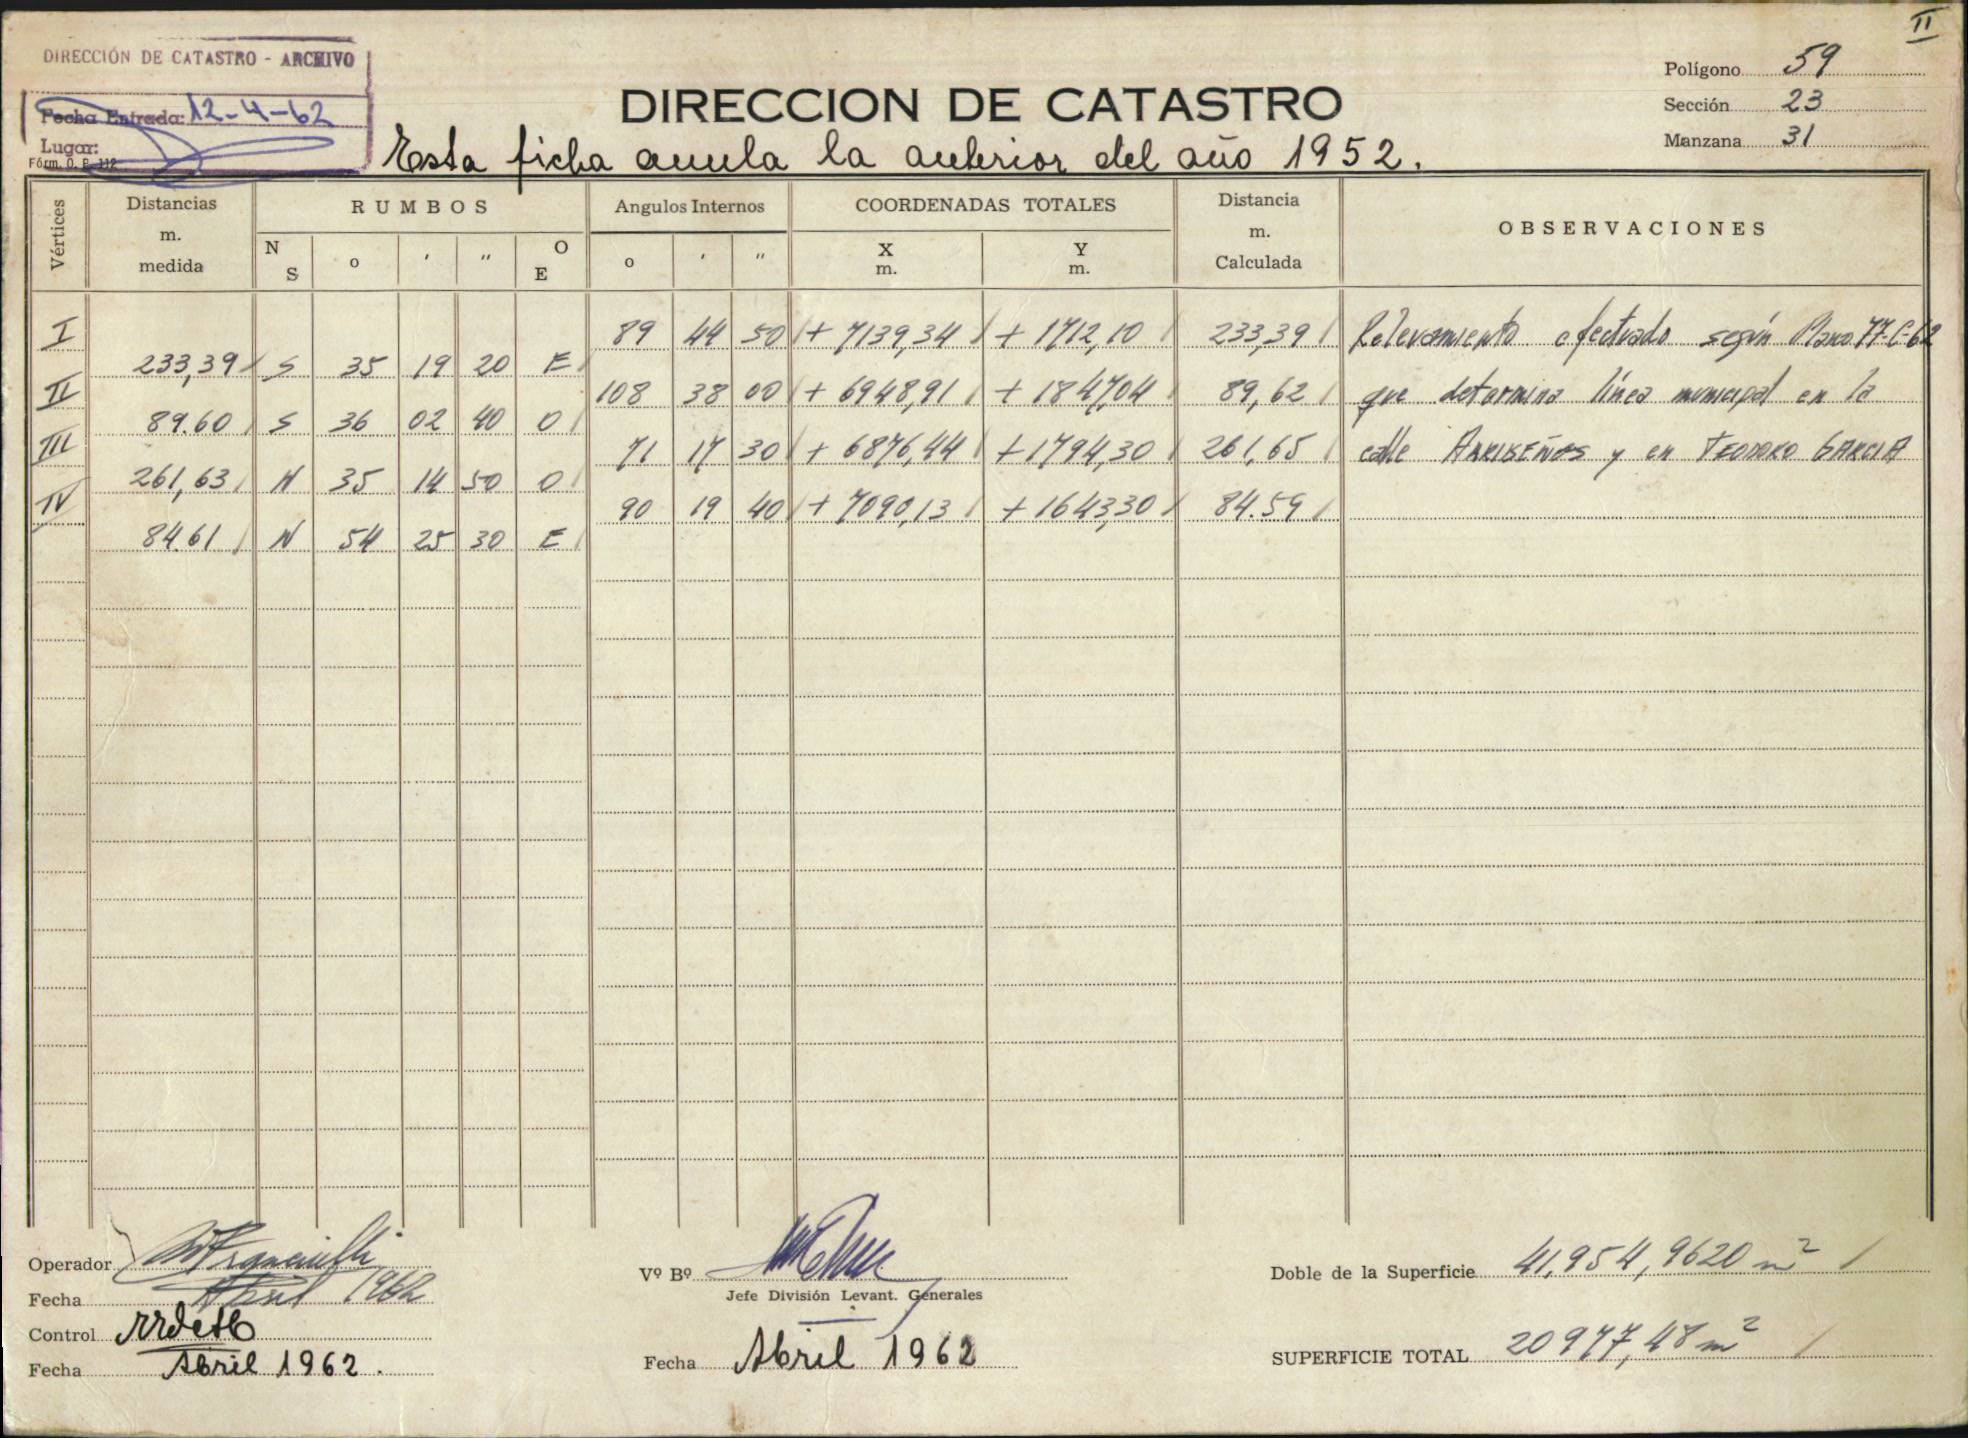 II
DIRECCIÓN DE CATASTRO - ARCHIVO
Fecha Entrada: 12-4-62
Lugar:
Fórm. O. P. 112
DIRECCION DE CATASTRO
Esta ficha anula la anterior del año 1952.
Polígono 59
Sección 23
Manzana 31
Vértices Distancias m. medida RUMBOS Angulos Internos COORDENADAS TOTALES Distancia m. Calculada OBSERVACIONES
N S o ' " O E o ' " X m. Y m.
I 89 44 50 + 7139,34 + 1712,10 233,39 Relevamiento efectuado según Plano 77-C-62
233,39 S 35 19 20 E
II 108 38 00 + 6948,91 + 1847,04 89,62 que determina línea municipal en la
89.60 S 36 02 40 O
III 71 17 30 + 6876,44 + 1794,30 261,65 calle ARRIBEÑOS y en TEODORO GARCIA
261,63 N 35 14 50 O
IV 90 19 40 + 7090,13 + 1643,30 84.59
84.61 N 54 25 30 E
Operador
Fecha Abril 1962
Control
Fecha Abril 1962.
Vº Bº
Jefe División Levant. Generales
Fecha Abril 1962
Doble de la Superficie 41.954,9620 m²
SUPERFICIE TOTAL 20977,48 m²